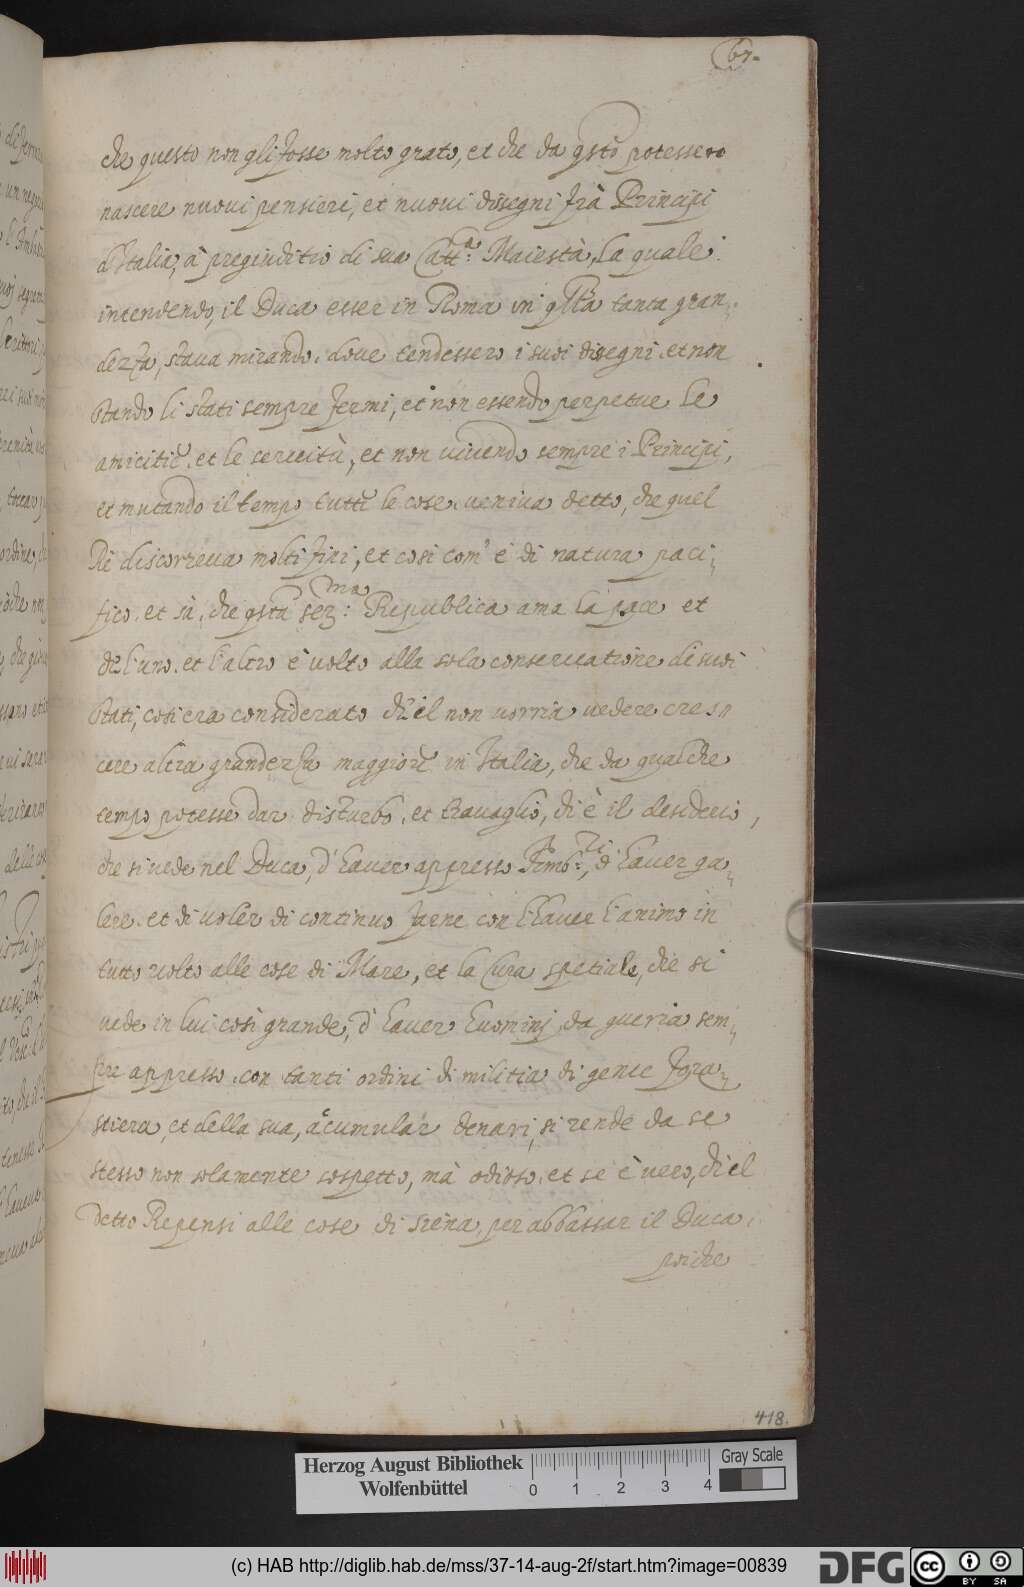 67.
che questo non gli fosse molto grato, et che da qsto potessero
nascere nuovi pensieri, et nuovi disegni frà Principi
d'Italia, à pregiuditio di sua Catt.ca Maiestà, la quale
intendendo, il Duca esser in Roma in qsta tanta gran-
dezza, staua mirando, doue tendessero i suoi disegni, et non
stando li stati sempre fermi, et non essendo perpetue le
amicitie, et le seruitù, et non uiuendo sempre i Principi,
et mutando il tempo tutte le cose, ueniua detto, che quel
Rè discorreua molti fini, et cosi com' è di natura paci-
fico, et sà, che qsta Ser.ma Republica ama la pace et
che l'uno, et l'altro è uolto alla sola conseruatione di suoi
stati, cosi era considerato ch'el non uorria uedere cres-
cere altra grandezza maggiore in Italia, che da qualche
tempo potesse dar disturbo, et trauaglio, ch'è il desiderio,
che si uede nel Duca, d'hauer appresso Amb.ri, d'hauer ga-
lere, et di uoler di continuo farne, con l'hauer l'animo in
tutto uolto alle cose di Mare, et la Cura spetiale, che si
uede in lui così grande, d'hauer huomini da guerra sem-
pre appresso, con tanti ordini di militia di gente fora-
stiera, et della sua, accumular denari, si rende da se
stesso non solamente sospetto, mà odioso, et se è uero, ch'el
detto Rè pensi alle cose di Siena, per abbassar il Duca,
poiche
418.
Herzog August Bibliothek
Wolfenbüttel
0 1 2 3 4
Gray Scale
(c) HAB http://diglib.hab.de/mss/37-14-aug-2f/start.htm?image=00839
DFG
cc BY SA